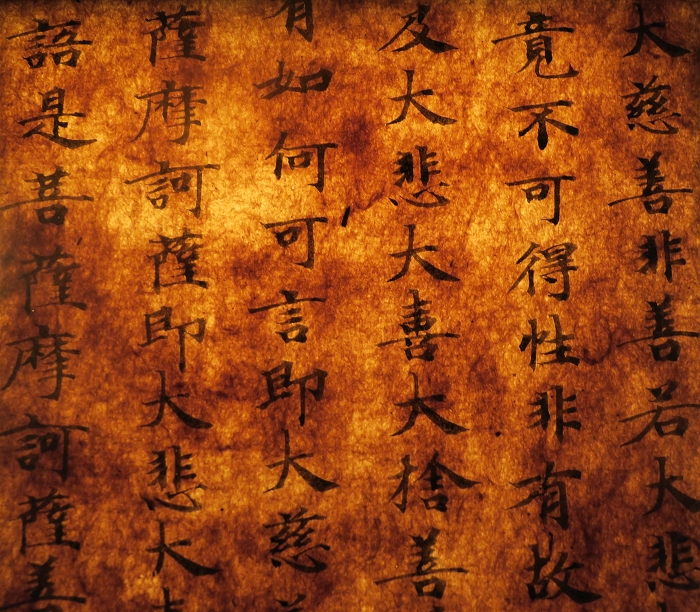 大慈善非善若大悲
竟不可得性非有故
及大悲大喜大捨善
有如何可言即大慈
薩摩訶薩即大悲大
語是菩薩摩訶薩善